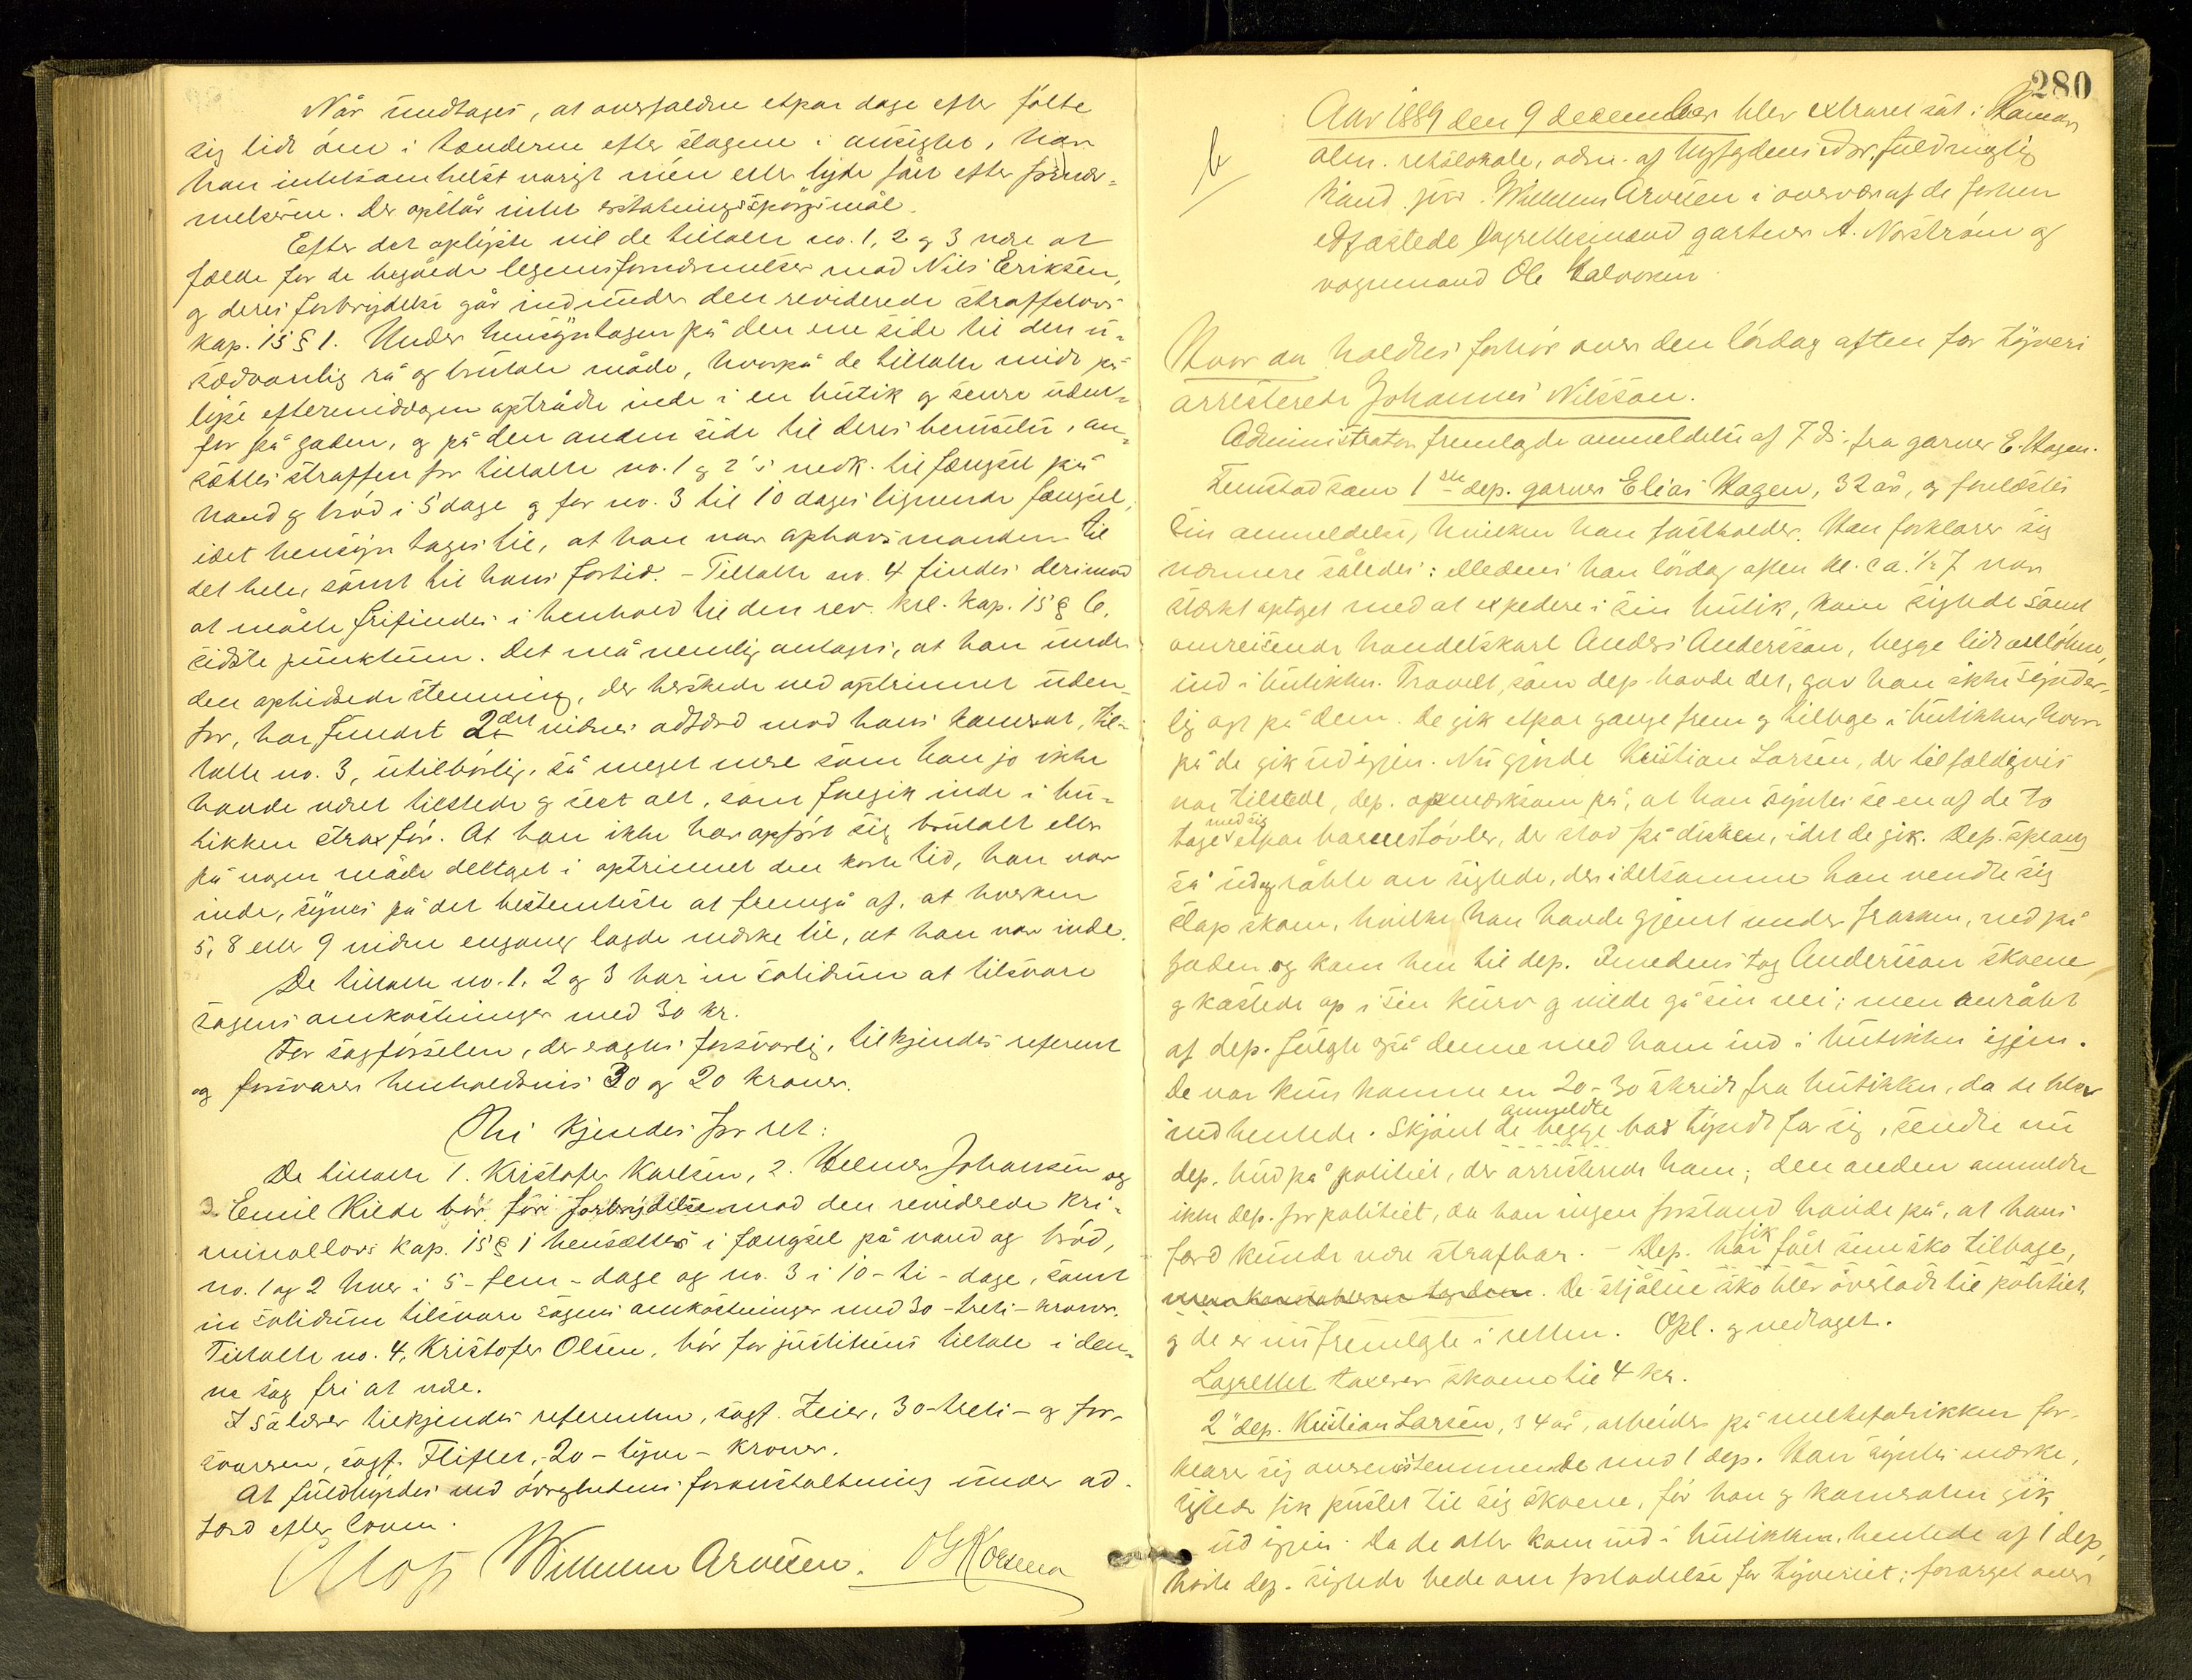 Når undtages, at overfaldne etpar dage efter følte
sig lidt øm i tænderne efter slagene i ansigtet, har
han intetsomhelst varigt mén eller lyde fået efter fornær-
melserne. Der opstår intet erstatningsspørgsmål.
Efter det oplyste vil de tiltalte no. 1, 2 og 3 være at
fælde for de begåede legemsfornærmelser mod Nils Eriksen,
og deres forbrydelse går ind under den reviderede straffelovs
kap. 15 § 1. Under hensyntagen på den ene side til den u-
sædvanlig rå og brutale måde, hvorpå de tiltalte midt på
lyse eftermiddagen optrådte inde i en butik og senere uden-
for på gaden, og på den anden side til deres beruselse, an-
sættes straffen for tiltalte no. 1 og 2's vedk. til fængsel på
vand og brød i 5 dage og for no. 3 til 10 dages lignende fængsel,
idet hensyn tages til, at han var ophavsmanden til
det hele, samt til hans fortid. – Tiltalte no. 4 findes derimod
at måtte frifindes i henhold til den rev. krl. kap. 15 § 6,
sidste punktum. Det må nemlig antages, at han under
den ophidsede stemning, der herskede ved optrinnet uden-
for, har fundet 2det vidnes adfærd mod hans kamerat, til-
talte no. 3, utilbørlig, så meget mere som han jo ikke
havde været tilstede og seet alt, som foregik inde i bu-
tikken strax før. At han ikke har opført sig brutalt eller
på nogen måde deltaget i optrinnet den korte tid, han var
inde, synes på det bestemteste at fremgå af, at hverken
5, 8 eller 9 vidne engang lagde mærke til, at han var inde.
De tiltalte no. 1, 2 og 3 har in solidum at tilsvare
sagens omkostninger med 30 kr.
For sagførselen, der ragtes forsvarlig, tilkjendes referent
og forsvarer henholdsvis 30 og 20 kroner.
Thi kjendes for ret:
De tiltalte 1. Kristofer Karlsen, 2. Helmer Johansen og
3. Emil Kilde bør for forbrydelse mod den reviderede kri-
minallovs kap. 15 § 1 hensættes i fængsel på vand og brød,
no. 1 og 2 hver i 5 – fem – dage og no. 3 i 10 – ti – dage, samt
in solidum tilsvare sagens omkostninger med 30 – treti – kroner.
Tiltalte no. 4, Kristofer Olsen, bør for justitiens tiltale i den-
ne sag fri at være.
I salærer tilkjendes referenten, sagf. Zeier, 30 – treti – og for-
svareren, sagf. Fliflet, 20 – tyve – kroner.
At fuldbyrdes ved øvrighedens foranstaltning under ad-
færd efter loven.
Wilhelm Arvesen.

280
Aar 1889 den 9 december blev extraret sat i Hamar
alm. retslokale, adm. af byfogdens edsv. fuldmægtig
kand. jur. Wilhelm Arvesen i overvær af de forhen
edfæstede lagrettesmænd gartner A. Norstrøm og
vognmand Ole Halvorsen
Hvor da holdtes forhør over den lørdag aften for tyveri
arresterede Johannes Nilsson.
Administrator fremlagde anmeldelse af 7 ds. fra garver E. Hagen.
Fremstod som 1ste dep. garver Elias Hagen, 32 år, og forelæstes
sin anmeldelse, hvilken han fastholder. Han forklarer sig
nærmere således: Medens han lørdag aften kl. ca. ½ 7 var
stærkt optaget med at expedere i sin butik, kom sigtede samt
omreisende handelskarl Anders Andersson, begge lidt
ind i butikken. Travelt, som dep. havde det, gav han ikke synder-
lig agt på dem. De gik etpar gange frem og tilbage i butikken, hvor-
på de gik ud igjen. Nu gjorde Kristian Larsen, der tilfældigvis
var tilstede, dep. opmærksom på, at han syntes se en af de to
tage med sig etpar barnestøvler, der stod på disken, idet de gik. Dep. sprang
så ud og råbte an sigtede, der idetsamme han vendte sig
slap skoene, hvilke han havde gjemt under frakken, ned på
gaden og kom hen til dep. Imedens tog Andersson skoene
og kastede op i sin kurv og vilde gå sin vei; men anråbt
af dep. fulgte også denne med ham ind i butikken igjen.
De var kun komne en 20–30 skridt fra butikken, da de blev
indhentede. Skjønt de begge anmeldte bad tyndt for sig, sendte nu
dep. bud på politiet, der arresterede ham; den anden anmeldte
ikke dep. for politiet, da han ingen forstand havde på, at hans
færd kunde være strafbar. – Dep. fik sine sko tilbage,
De stjålne sko blev overladt til politiet,
og de er nu fremlagte i retten. Opl. og vedtaget.
Lagrettet taxerer skoene til 4 kr.
2' dep. Kristian Larsen, 34 år, arbeider på melkefabrikken for-
klarer sig overensstemmende med 1 dep. Han syntes mærke,
sigtede fik puslet til sig skoene, før han og kameraten gik
ud igjen. Da de atter kom ind i butikken, hentede af 1 dep,
hørte dep. sigtede bede om forladelse for tyveriet; forarget over